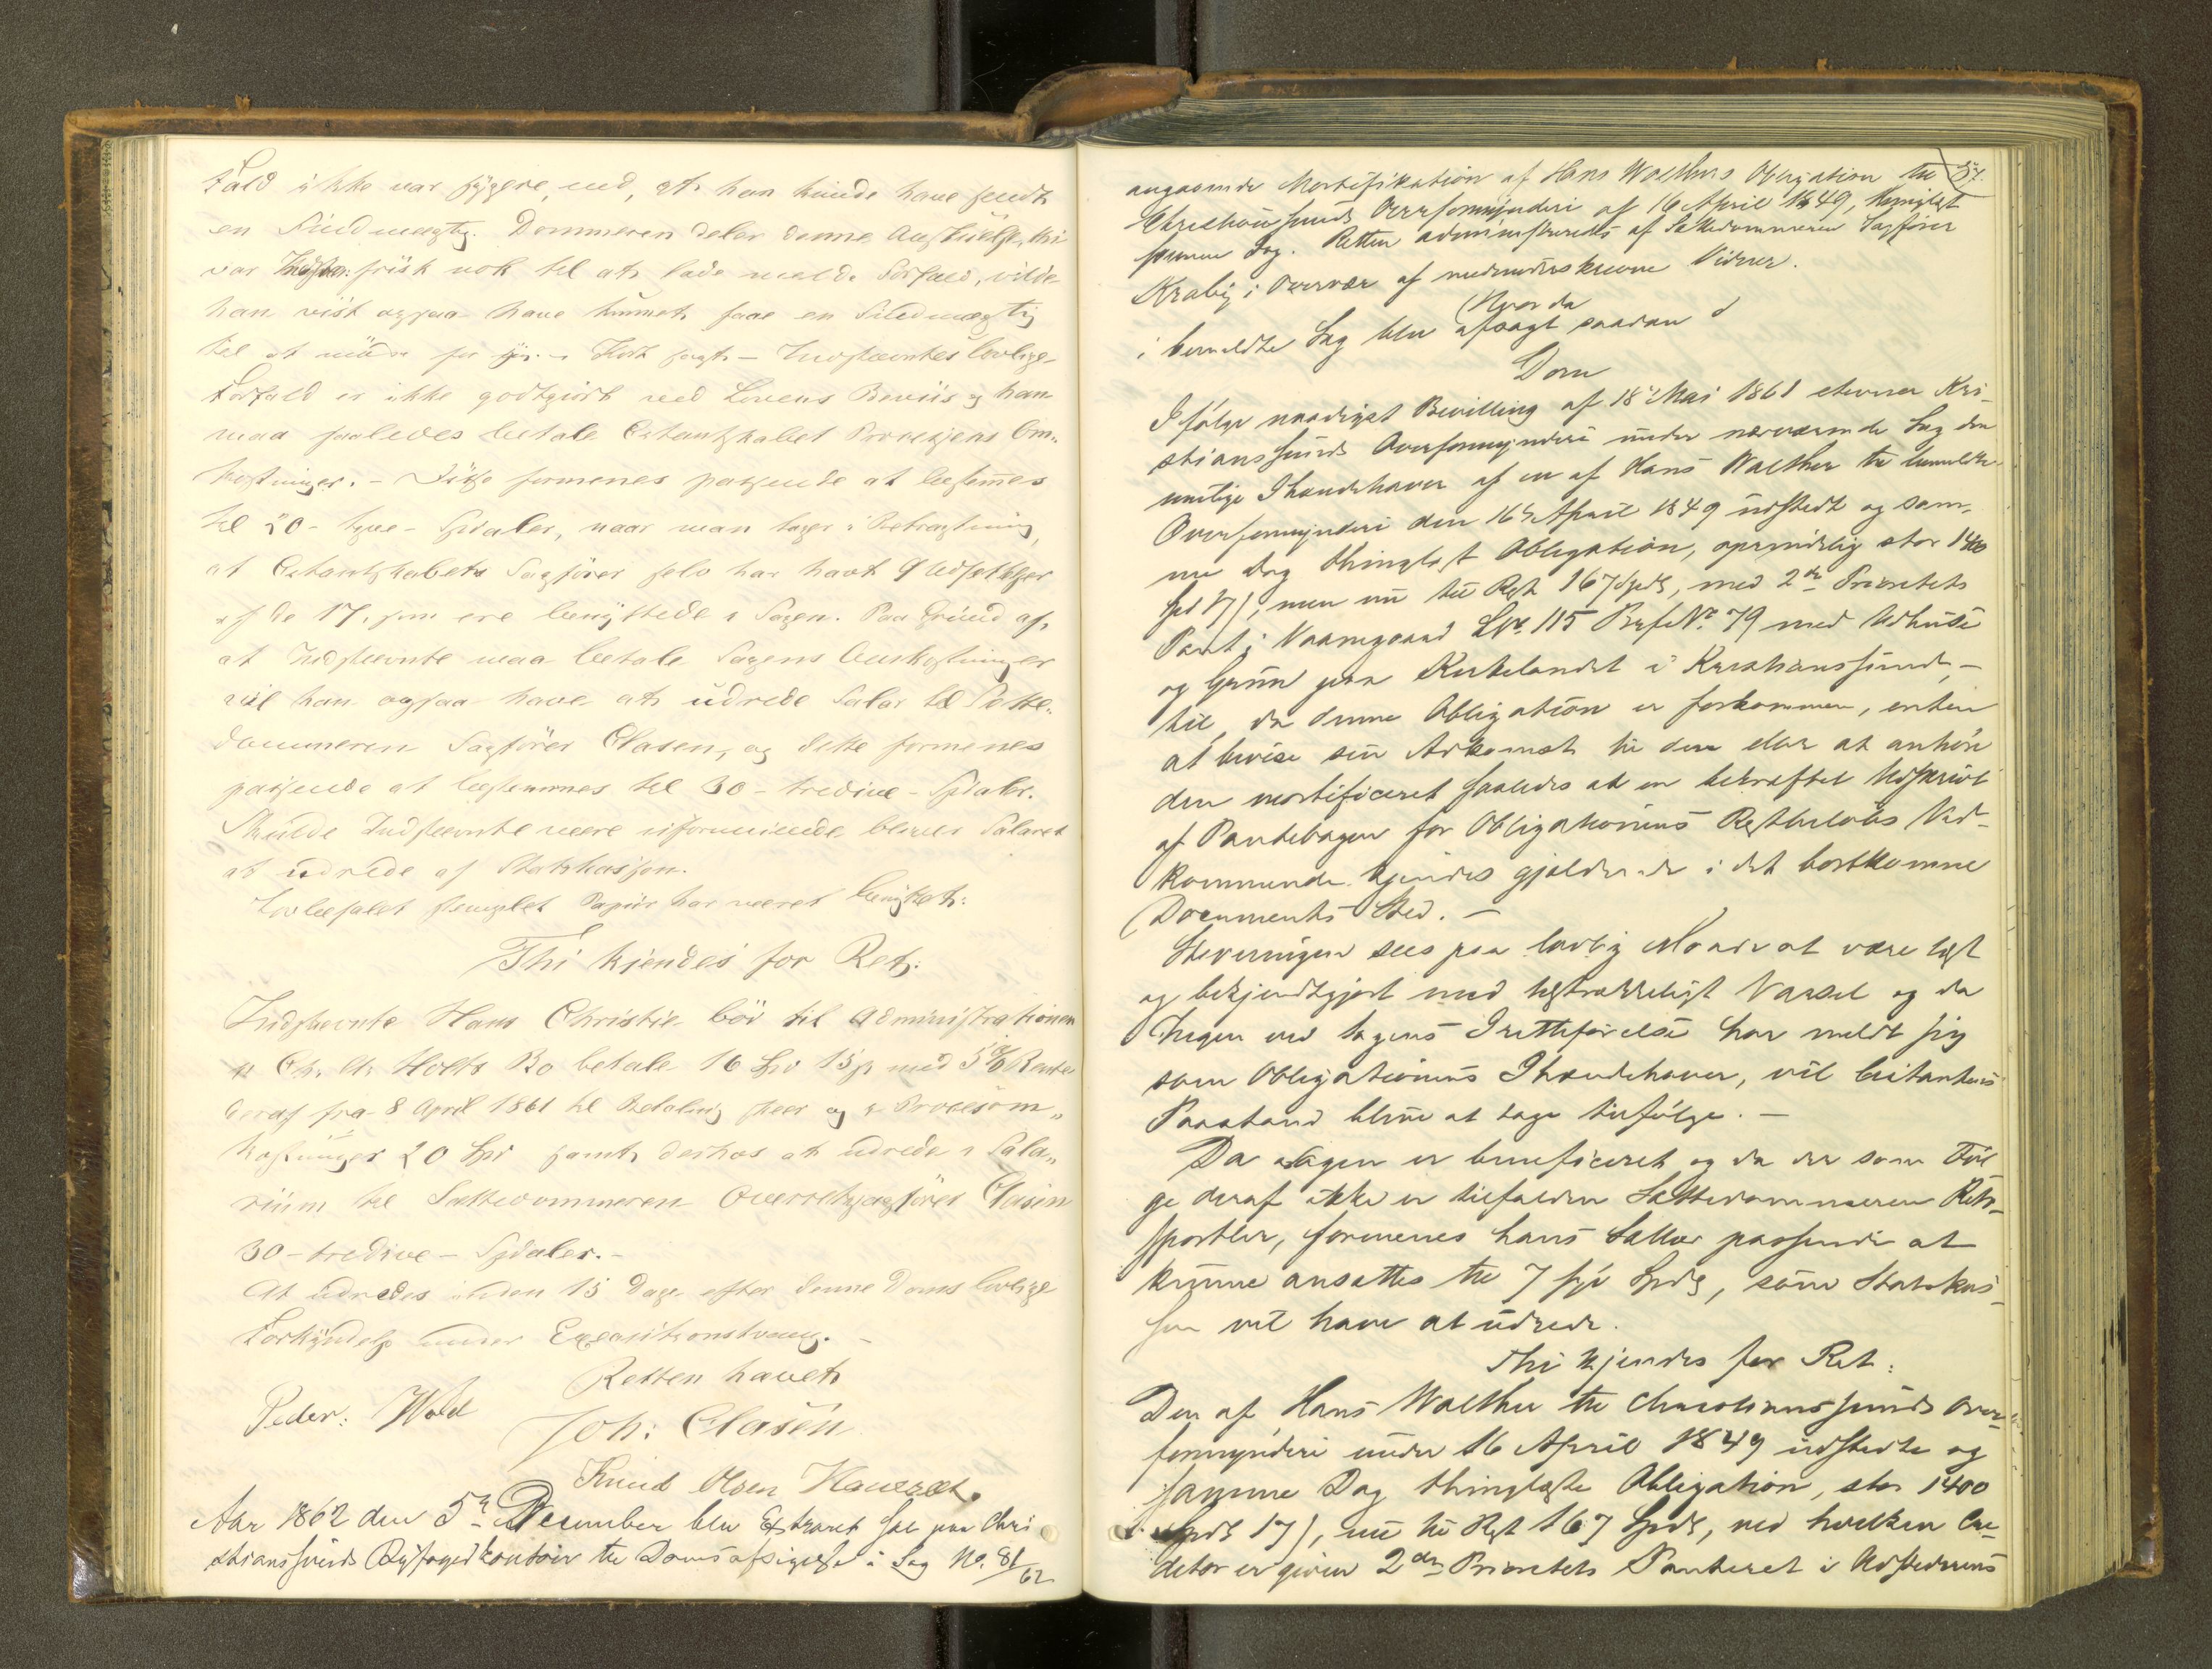 Fald ikke var sygere end, at han kunde have sendt
en Fuldmægtig. Dommeren deler denne Anskuelse, thi
var Indst: frisk nok til at lade melde Forfald, vilde
han vist ogsaa have kunnet faae en Fuldmægtig
til at møde for sig. Kort sagt - Indstævntes lovlige
Forfald er ikke godtgjort ved Lovens Beviis og han
maa saaledes betale Citantskabet Processens Om-
kostninger. - Disse formenes passende at bestemmes
til 20 - tyve - Spdaler, naar man tager i Betragtning,
at Citantskabets Sagfører selv har havt 9 Udsættelser
af de 17, som ere benyttede i Sagen. Paa Grund af,
at Indstævnte maa betale Sagens Omkostninger
vil han ogsaa have at udrede Salær til Sætte-
dommeren Sagfører Clasen, og dette formenes
passende at bestemmes til 30 - tredive - Spdaler.
Skulde Indstævnte være uformuende bliver Salaret
at udrede af Statskassen.
Lovbefalet stemplet Papiir har været benyttet.
Thi kjendes for Ret:
Indstævnte Hans Christie bør til Administrationen
i Ch. A. Holts Bo betale 16 Spd 15 s med 5% Renter
deraf fra 8 April 1861 til Betaling skeer og i Procesom-
kostninger 20 Spd samt derhos at udrede i Sala-
rium til Sættedommeren Overretssagfører Clasen
30 - tredive - Spdaler. -
At udredes inden 15 Dage efter denne Doms lovlige
Forkyndelse under Executionstvang. -
Retten hævet
Peder: Wold Joh: Clasen
Knud Olsen
Aar 1862 den 5te December blev Extraret sat paa Chri
stianssunds Byfogedkontoir til Domsafsigelse i Sag No. 81/62
angaaende Mortifikation af Hans Walthers Obligation til
Christianssunds Overformynderi af 16 April 1849, thinglæst
samme Dag. Retten administreredes af Sættedommeren Sagfører
Krabig i Overvær af medunderskrevne Vidner.
Hvorda
i bemeldte Sag blev afsagt saadan
Dom
Ifølge naadigst Bevilling af 18de Mai 1861 stevner Kri-
stianssunds Overformynderi under nærværende Sag den
mulige Ihændehaver af en af Hans Walther til bemeldte
Overformynderi den 16de April 1849 udstedt og sam-
me Dag thinglæst Obligation, oprindelig stor 1400
Spd 17), men nu til Rest 167 Spds, med 2den Prioritets
Pant i Vaaninggaard LNo. 115 BrfNo. 79 med Udhuse
og Grund paa Kirkelandet i Kristianssund, -
til, da denne Obligation er forkommen, enten
at bevise sin Adkomst til den eller at anhøre
den mortificeret saaledes at en bekræftet Udskrivt
af Pantebogen for Obligationens Restbeløbs Ved-
kommende kjendes gjeldende i det bortkomne
Documents Sted. -
Stevningen sees paa lovlig Maade at være læst
og bekjendtgjort med tilstrækkeligt Varsel og da
Ingen ved Sagens Iretteførelse har meldt sig
som Obligationens Ihændehaver, vil Citantens
Paastand blive at tage tilfølge. -
Da Sagen er beneficeret og da der som Føl-
ge deraf ikke er tilfalden Sættedommeren Rets-
sportler, formenes hans Sallær passende at
kunne ansættes til 7 syv Spds, som Statskas-
sen vil have at udrede.
Thi kjendes for Ret:
Den af Hans Walther til Christianssunds Over-
formynderi under 16 April 1849 udstedte og
samme Dag thinglæste Obligation, stor 1400
Spds 17), nu til Rest 167 Spds, ved hvilken Cre-
ditor er given 2den Prioritets Panteret i Udstederens